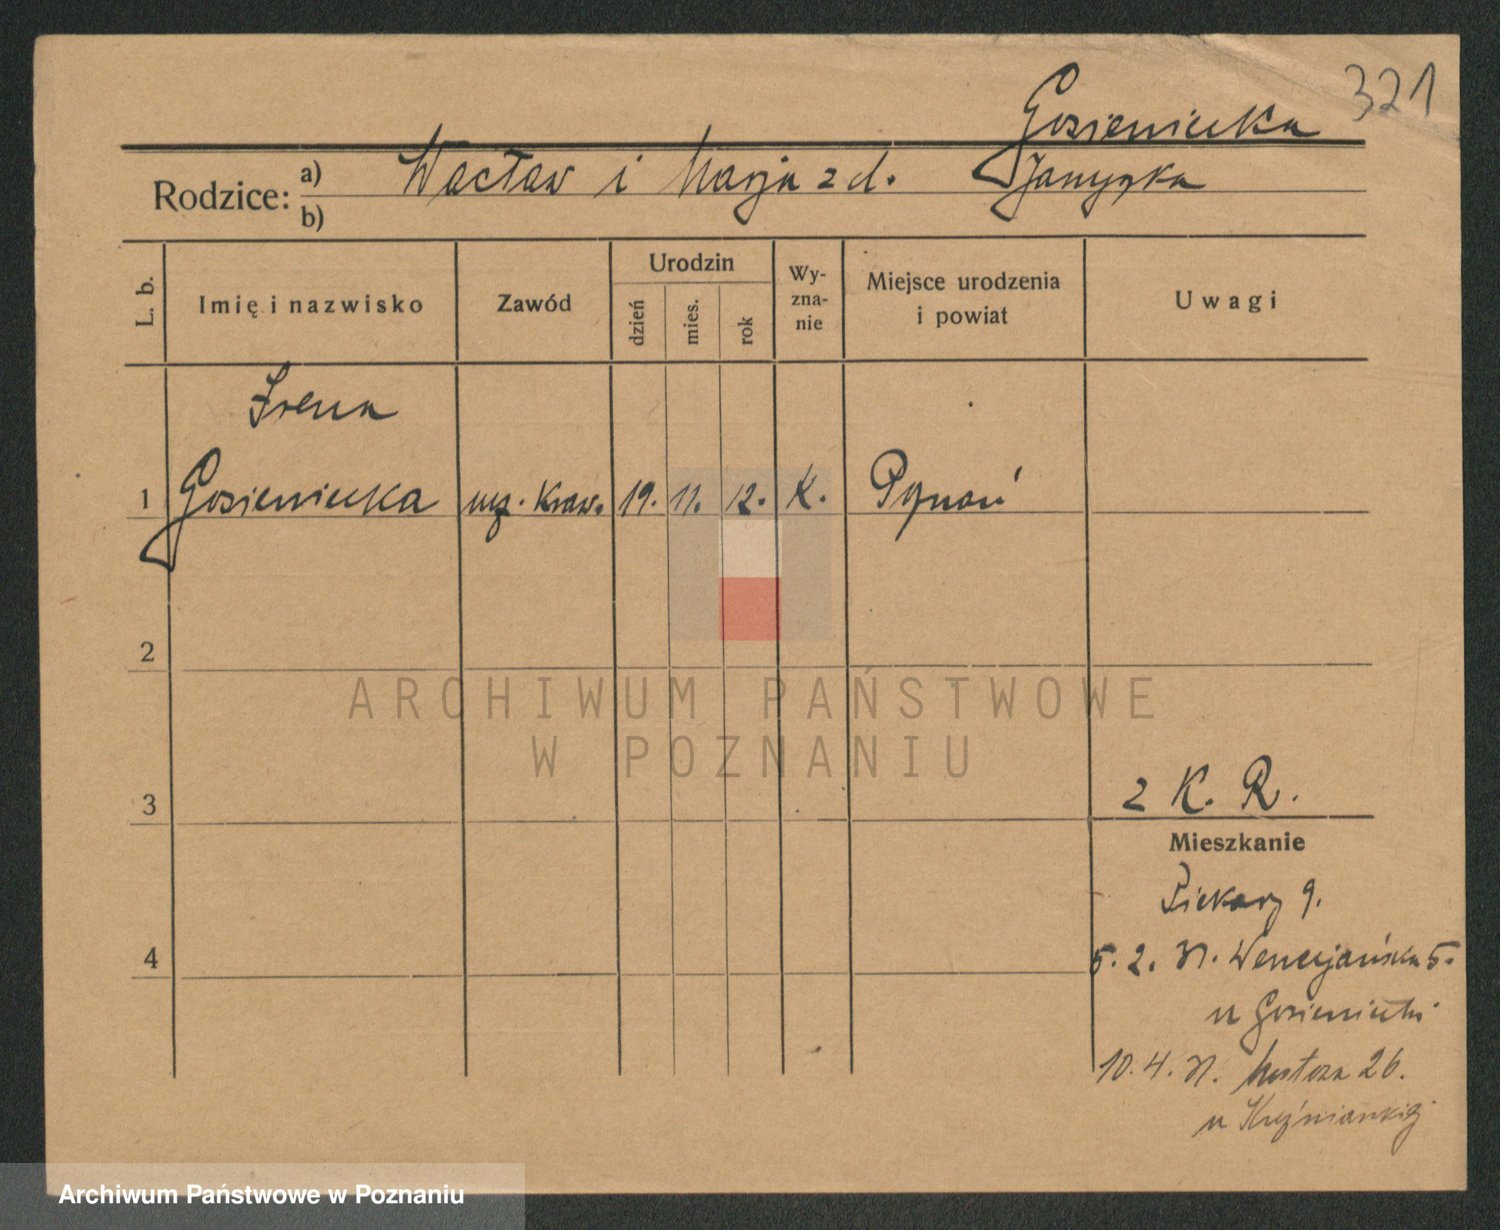 321
Gosieniecka
Rodzice: a) Wacław i Marja z d. Janyzka
b)
L. b.
Imię i nazwisko
Zawód
Urodzin
dzień
mies.
rok
Wy-
zna-
nie
Miejsce urodzenia
i powiat
Uwagi
Irena
1 Gosieniecka ucz. Kraw. 19. 11. 12. K. Poznań
2
ARCHIWUM PAŃSTWOWE
W POZNANIU
z K. R.
3
Mieszkanie
Piekary 9.
4
5. 2. 31. Wenecjańska 5.
u Gosieniecki
10. 4. 31. 26.
u
Archiwum Państwowe w Poznaniu